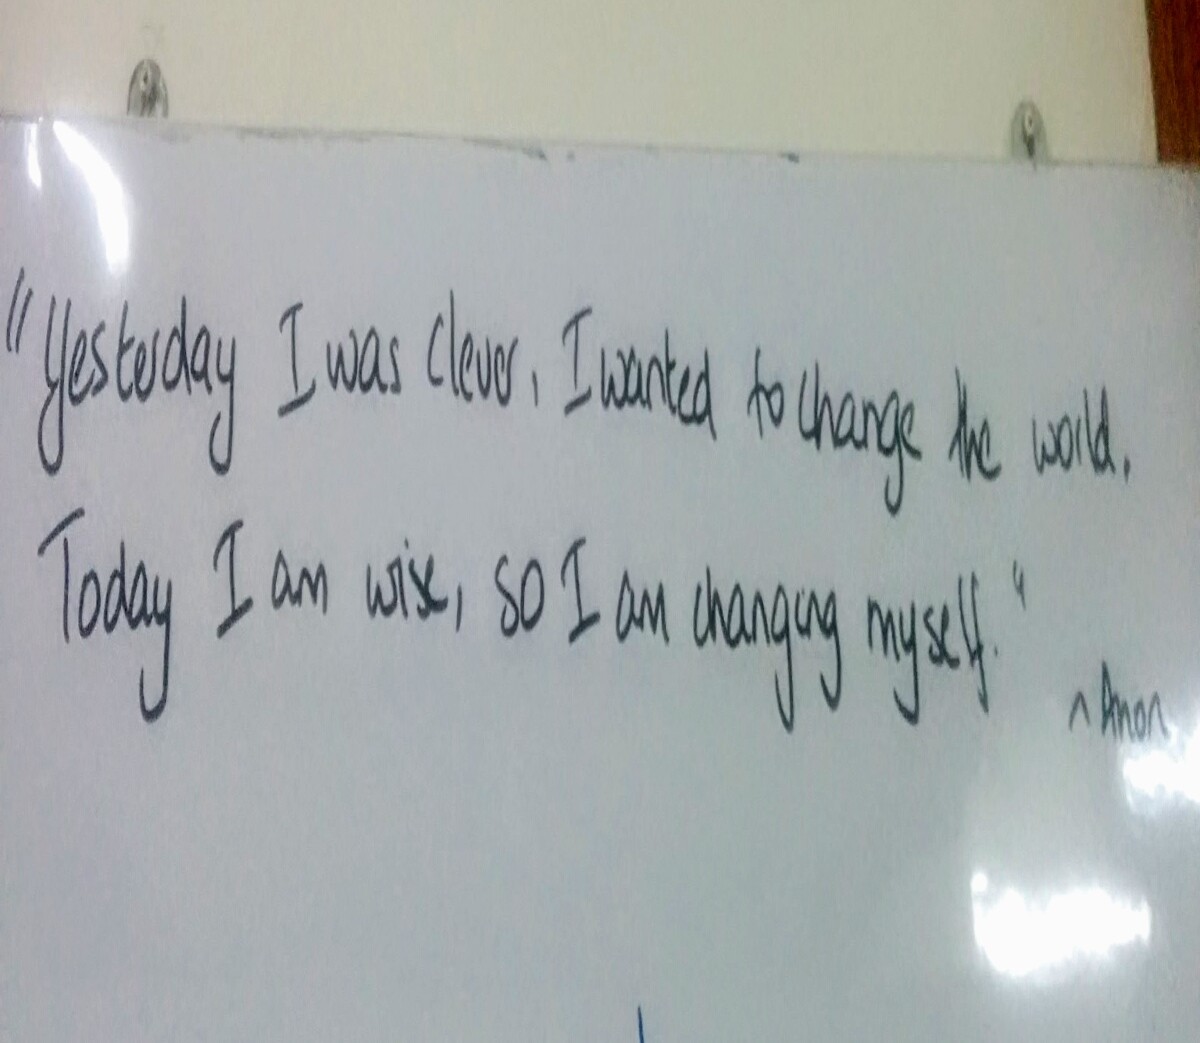 "Yesterday I was clever, I wanted to change the world.
Today I am wise, so I am changing myself."
~ Anon